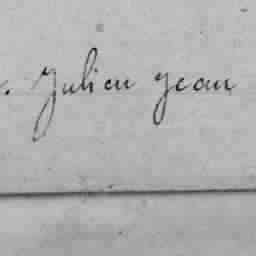 Julien Jean